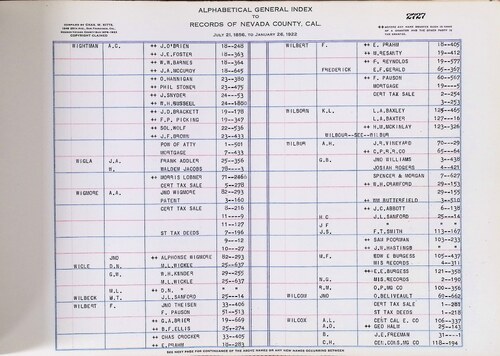 ALPHABETICAL GENERAL INDEX
TO
RECORDS OF NEVADA COUNTY, CAL.
JULY 21, 1856, TO JANUARY 26, 1922
COPYRIGHT CLAIMED
WIGHTMAN A.O. ++ J.O'BRIEN 18--248
++ J.E.FOSTER 18--363
++ W.W.BARNES 18--364
++ J.A.MCCURDY 18--645
++ O.HANNIGAN 23--380
++ PHIL STONER 23--475
++ J.SNYDER 24--53
++ J.D.BRACKETT 19--178
++ F.P. PICKING 19--347
++ SOL.WOLF 22--536
++ J.F.BROWN 23--433
POW OF ATTY 1--501
MORTGAGE 7--433
WIGLA J.A. FRANK ADDLER 25--356
M. WALDEW JACOBS 78---3
++ MORRIS LOBNER
CERT TAX SALE 5--278
WIGMORE A.A. JNO WIGMORE 82--293
PATENT 3--160
CERT TAX SALE 8--216
11----9
11--127
ST TAX DEEDS 7--196
9---12
10--27
JNO ++ ALPHONSE WIGMORE 82--293
WIGLE D.N. M.L.WICKLE 25--637
G.W. W.H.KENDER 29--255
M.L.WICKLE 25--637
M.L. ++ D.N. "
WILBECK M.T. J.L.SANFORD 25---14
WILBERT F. JNO THEISEN 33--406
F. PAUSON 51--513
++ G.A.BRIER 19--669
++ B.F.ELLIS 25--274
++ CHAS CROCKER 33--405
++ E.PRAHM 18--281
WILBERT F. ++ E. PRAHM 18--405
++ M.RESARTY 19--412
++ F. REYNOLDS 19--577
FREDERICK E.F.GERALD 65--397
++ F. PAUSON 60--507
MORTGAGE 19---5
CERT TAX SALE 2--254
3--253
WILBORN K.L. L.A.BAXLEY 125--465
L.A.BAXTER 127--16
++ H.M.MCKINLAY 123--326
WILBOUR--SEE--WILBUR
WILBUR A.H. J.R.VINEYARD 78---29
++ C.P.R.R.CO 65---64
G.B. JNO WILLIAMS 3--438
JOSIAH ROGERS 4--421
SPENCER & MORGAN 7--627
++ W.H.CRAWFORD 29--153
29--155
++ WM BUTTERFIELD 3--510
++ J.C.ABBOTT 6--138
H.C J.L.SANFORD 25---14
J F " "
J.S. F.T.SMITH 113--167
++ SAM POORMAN 103--233
++ J.R.HASTINGS " "
M.F. BOW E BURGESS 105--437
MIS RECORDS 4--311
++ E.E.BURGESS 121--358
N.G. MIS RECORDS 2--190
R.M. O.P.MG CO 100--356
WILCOX JNO O.BELIVEAULT 69--662
CERT TAX SALE 1--288
ST TAX DEEDS 1--218
WILCOX A.L. CENT CAL E. CO 106--337
A.O. ++ GEO HALM 25--143
B. J.E.FREEMAN 31----1
C.H. GEN.CONS.MG CO 118--194
SEE NEXT PAGE FOR CONTINUANCE OF THE ABOVE NAMES OR ANY NEW NAMES OCCURRING BETWEEN